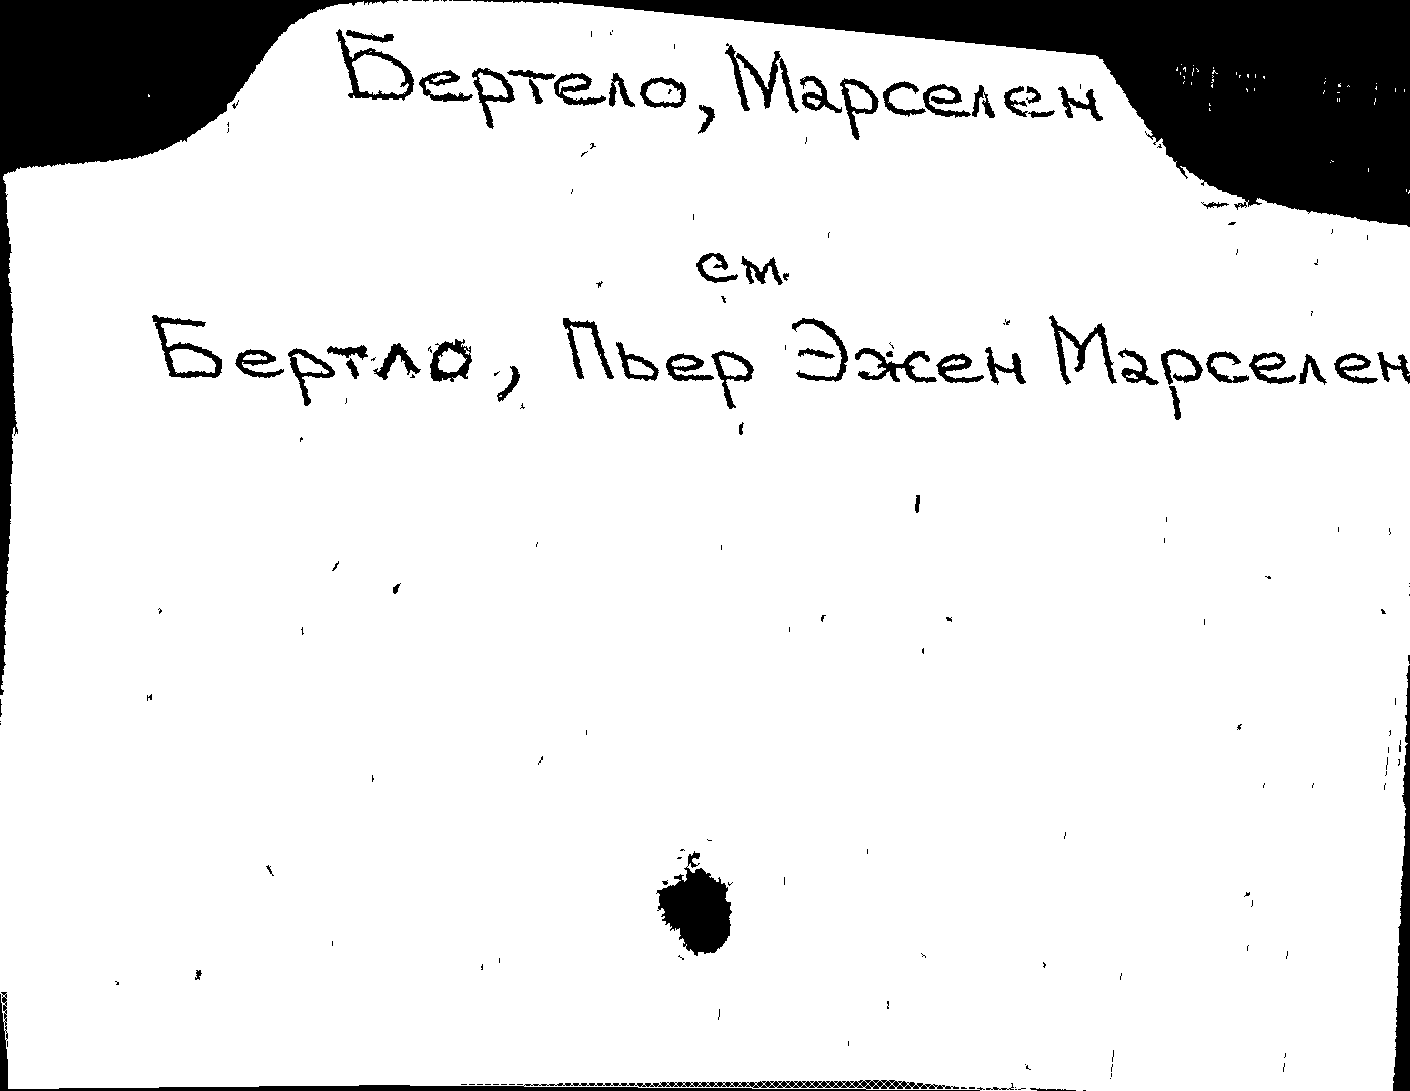 Бертело, Марселен
см.
Бертло, Пьер Эжен Марселен